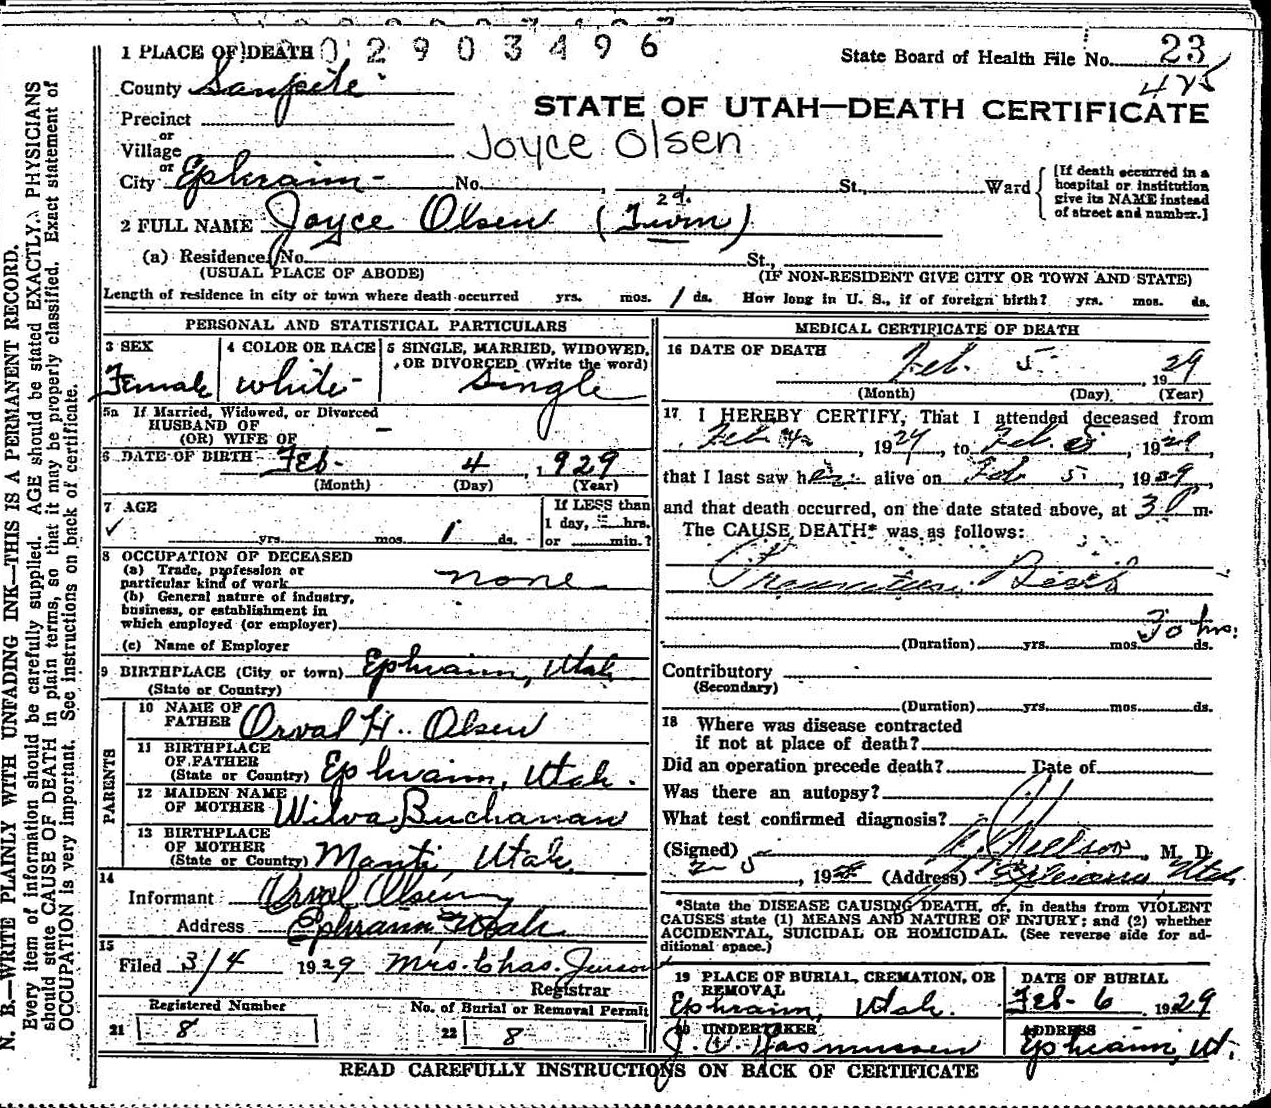 0 0 2 9 0 3 4 9 6
1 PLACE OF DEATH
State Board of Health File No. 23
425
County Sanpete
STATE OF UTAH—DEATH CERTIFICATE
Precinct
or
Village
Joyce Olsen
or
City Ephraim No. , St., Ward
[If death occurred in a
hospital or institution
give its NAME instead
of street and number.]
2 FULL NAME Joyce Olsen (Twin)
(a) Residence. No. St.,
(USUAL PLACE OF ABODE) (IF NON-RESIDENT GIVE CITY OR TOWN AND STATE)
Length of residence in city or town where death occurred yrs. mos. 1 ds. How long in U. S., if of foreign birth? yrs. mos. ds.
PERSONAL AND STATISTICAL PARTICULARS
3 SEX
Female
4 COLOR OR RACE
white
5 SINGLE, MARRIED, WIDOWED,
OR DIVORCED (Write the word)
Single
5a If Married, Widowed, or Divorced
HUSBAND OF
(OR) WIFE OF –
6 DATE OF BIRTH Feb- 4 , 1929
(Month) (Day) (Year)
7 AGE
yrs. mos. 1 ds.
If LESS than
1 day, hrs.
or min.?
8 OCCUPATION OF DECEASED
(a) Trade, profession or
particular kind of work none
(b) General nature of industry,
business, or establishment in
which employed (or employer)
(c) Name of Employer
9 BIRTHPLACE (City or town) Ephraim, Utah
(State or Country)
PARENTS
10 NAME OF
FATHER Orval H. Olsen
11 BIRTHPLACE
OF FATHER
(State or Country) Ephraim, Utah.
12 MAIDEN NAME
OF MOTHER Wilva Buchanan
13 BIRTHPLACE
OF MOTHER
(State or Country) Manti, Utah.
14
Informant Orval Olsen
Address Ephraim, Utah
15
Filed 3/4 1929 Mrs. Chas. Jenson
Registrar
Registered Number
21 8
No. of Burial or Removal Permit
22 8
MEDICAL CERTIFICATE OF DEATH
16 DATE OF DEATH
Feb. 5 , 1929
(Month) (Day) (Year)
17 I HEREBY CERTIFY, That I attended deceased from
Feb 4 , 1929, to Feb. 5 , 1929,
that I last saw her alive on Feb 5 , 1929,
and that death occurred, on the date stated above, at 3 P m.
The CAUSE DEATH* was as follows:
Premature Birth
30 hrs.
(Duration) yrs. mos. ds.
Contributory
(Secondary)
(Duration) yrs. mos. ds.
18 Where was disease contracted
if not at place of death?
Did an operation precede death? Date of
Was there an autopsy?
What test confirmed diagnosis?
(Signed) , M. D.
2-5 , 19 (Address) Ephraim Utah
*State the DISEASE CAUSING DEATH, or, in deaths from VIOLENT
CAUSES state (1) MEANS AND NATURE OF INJURY; and (2) whether
ACCIDENTAL, SUICIDAL OR HOMICIDAL. (See reverse side for ad-
ditional space.)
19 PLACE OF BURIAL, CREMATION, OR
REMOVAL
Ephraim, Utah.
DATE OF BURIAL
Feb- 6 , 1929
20 UNDERTAKER
Rasmussen
ADDRESS
Ephraim, Ut.
READ CAREFULLY INSTRUCTIONS ON BACK OF CERTIFICATE
N. B.—WRITE PLAINLY WITH UNFADING INK—THIS IS A PERMANENT RECORD.
Every item of information should be carefully supplied. AGE should be stated EXACTLY. PHYSICIANS
should state CAUSE OF DEATH in plain terms, so that it may be properly classified. Exact statement of
OCCUPATION is very important. See instructions on back of certificate.